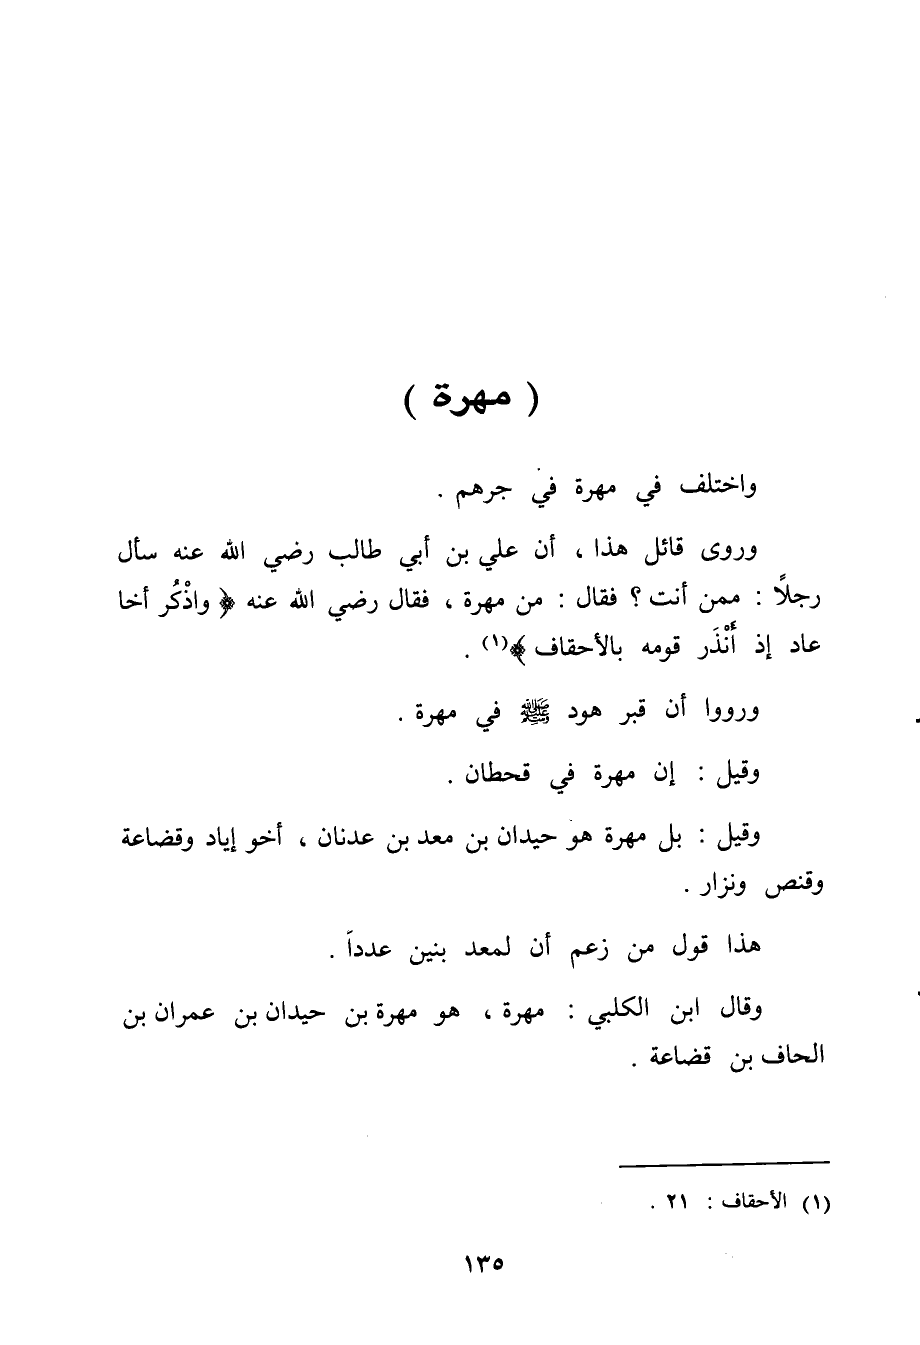 ( مهرة )
واختلف في مهرة في جرهم .
وروى قائل هذا ، أن علي بن أبي طالب رضي الله عنه سأل
رجلًا : ممن أنت ؟ فقال : من مهرة ، فقال رضي الله عنه ﴿ واذْكُر أخا
عاد إذ أَنْذَر قومه بالأحقاف ﴾(١) .
ورووا أن قبر هود ﷺ في مهرة .
وقيل : إن مهرة في قحطان .
وقيل : بل مهرة هو حيدان بن معد بن عدنان ، أخو إياد وقضاعة
وقنص ونزار .
هذا قول من زعم أن لمعد بنين عدداً .
وقال ابن الكلبي : مهرة ، هو مهرة بن حيدان بن عمران بن
الحاف بن قضاعة .
(١) الأحقاف : ٢١ .
١٣٥